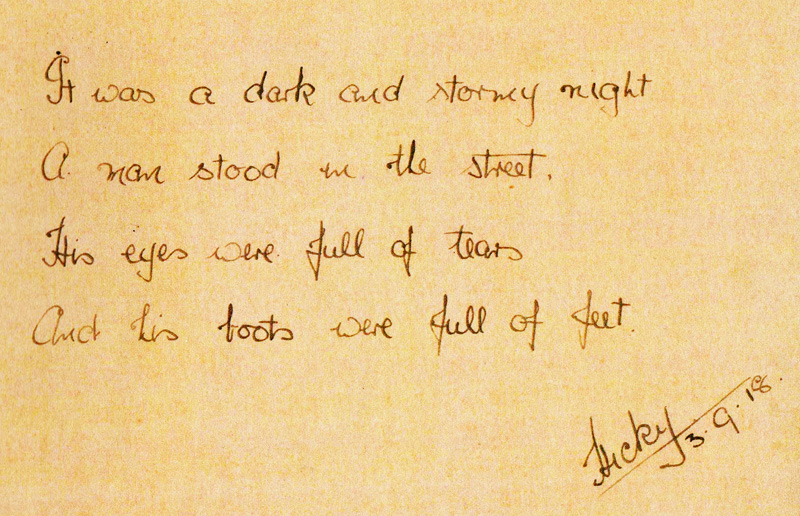 It was a dark and stormy night
A man stood in the street.
His eyes were full of tears
And his boots were full of feet.
Hicky
3.9.18.